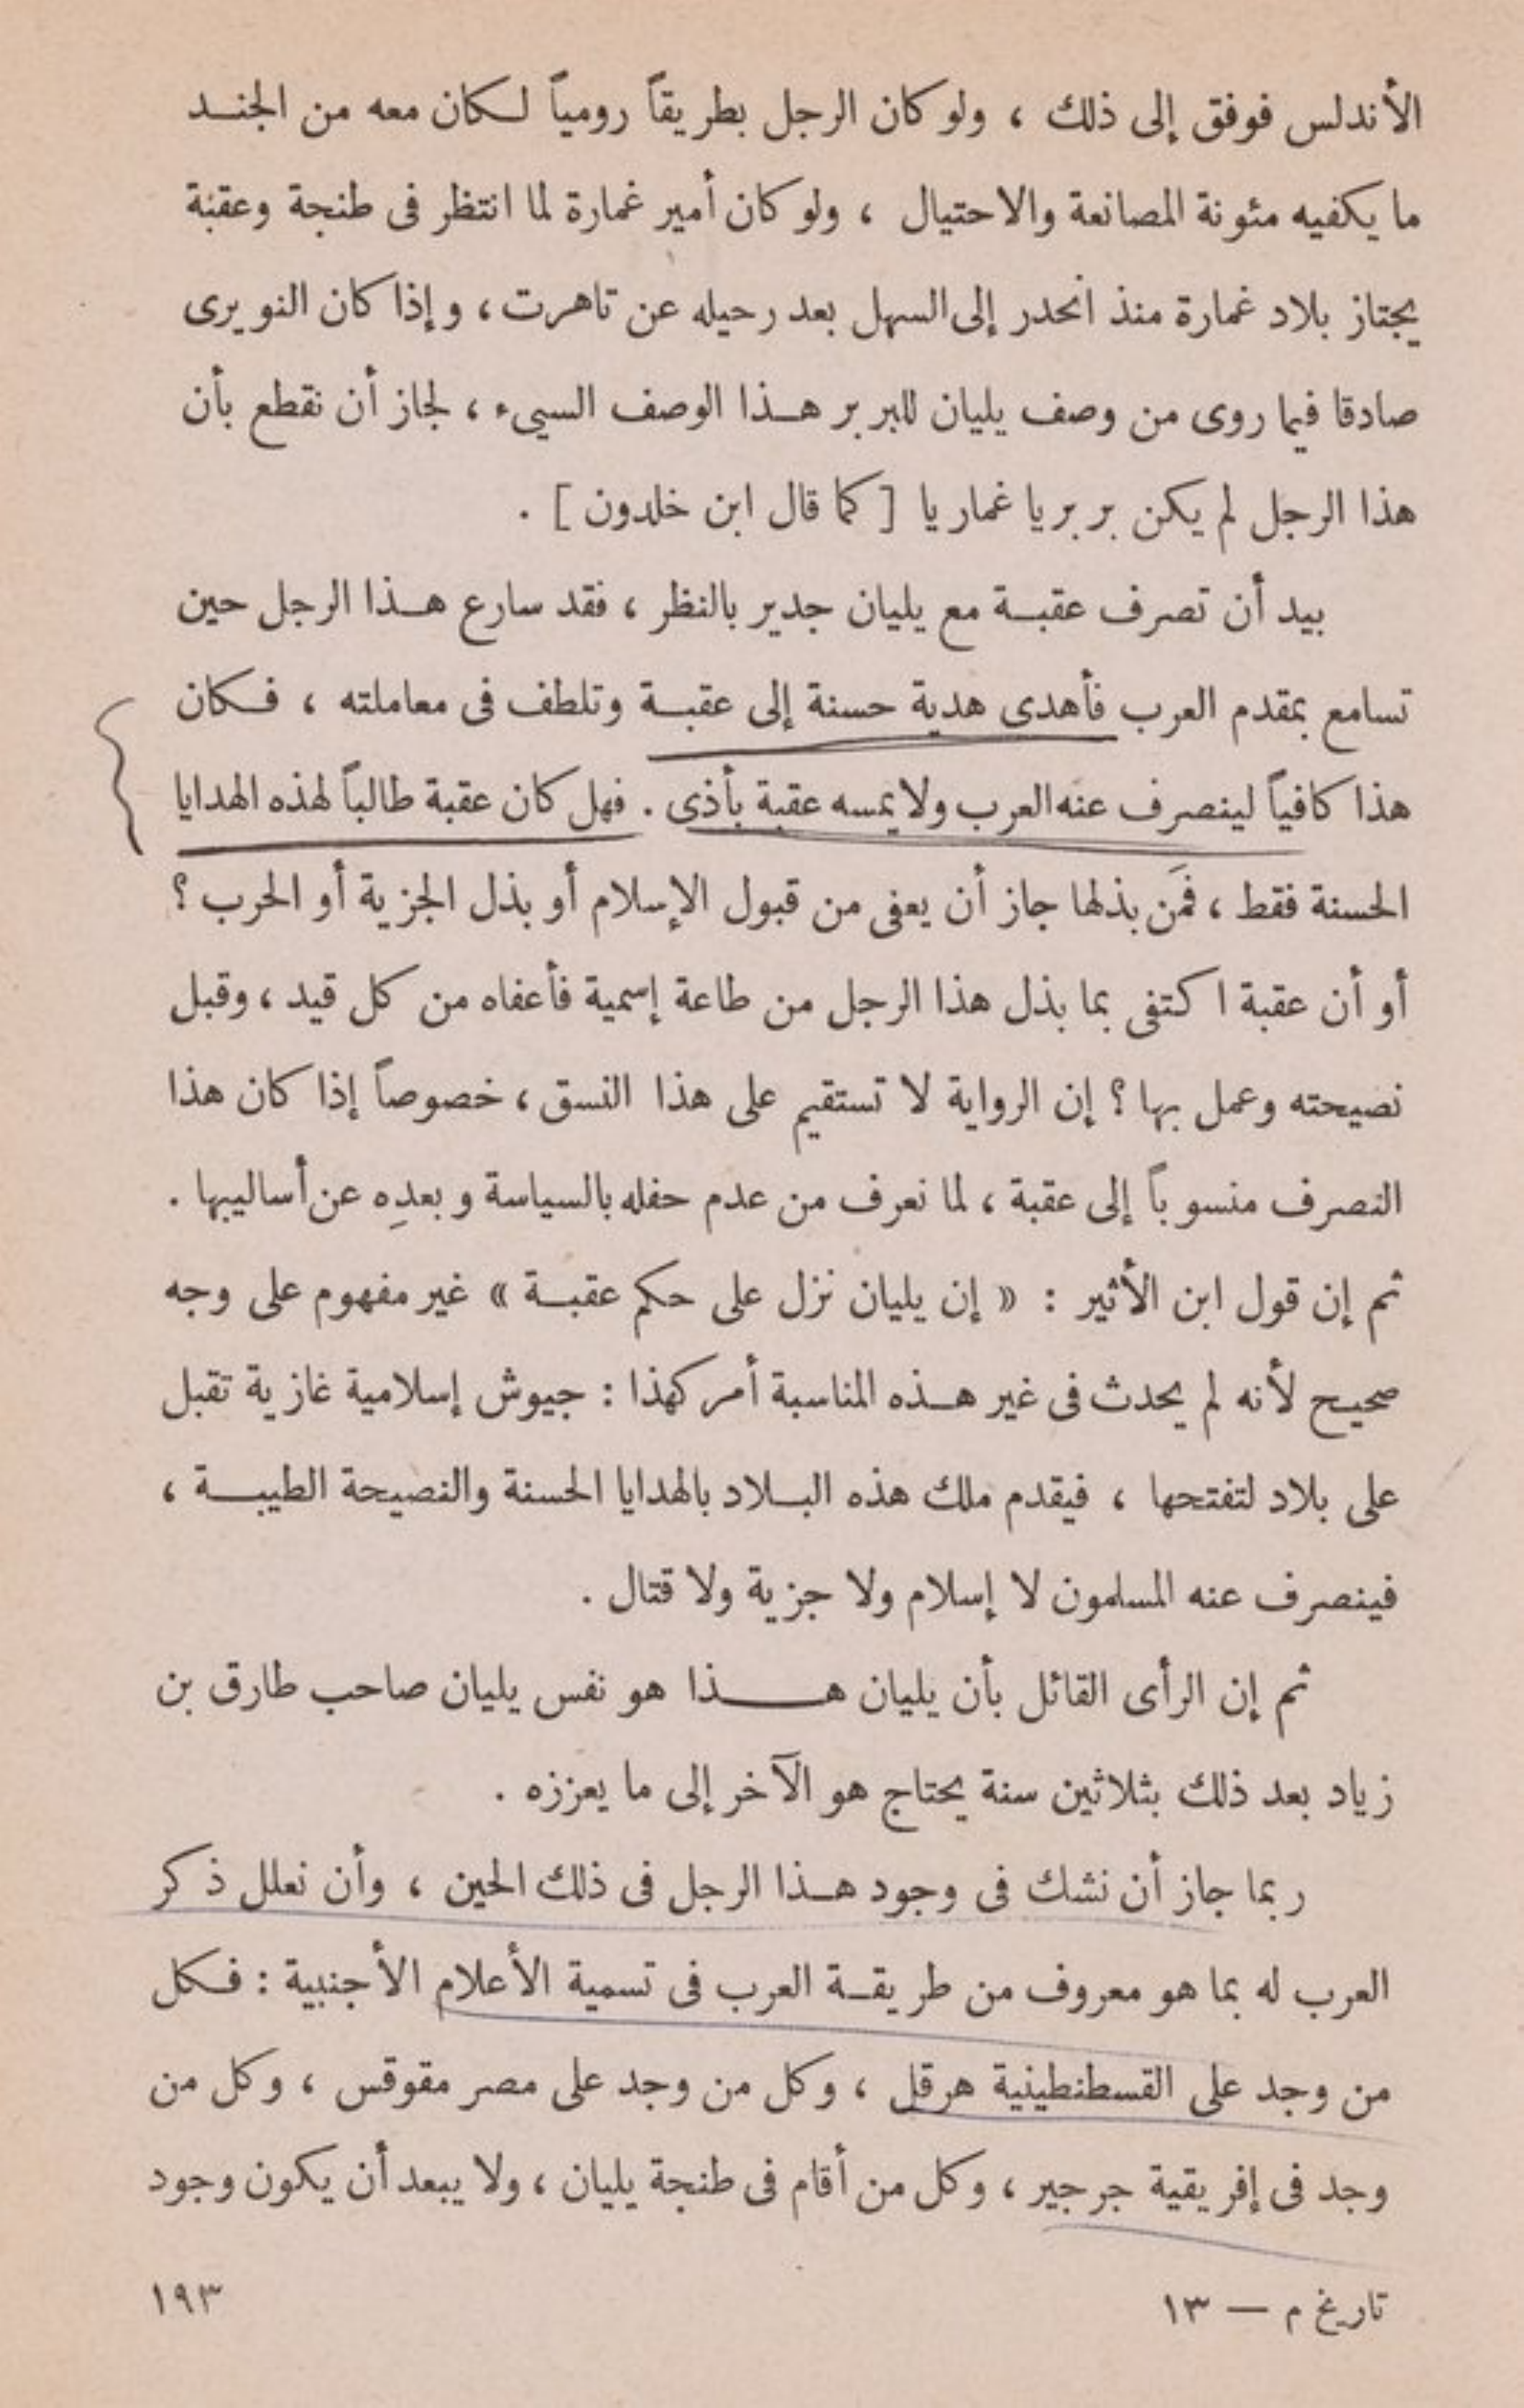 الأندلس فوفق إلى ذلك ، ولو كان الرجل بطريقاً رومياً لكان معه من الجنـد
ما يكفيه مئونة المصانعة والاحتيال ، ولو كان أمير غمارة لما انتظر فى طنجة وعقبة
يجتاز بلاد غمارة منذ انحدر إلى السهل بعد رحيله عن تاهرت ، وإذا كان النويرى
صادقا فيما روى من وصف يليان للبربر هـذا الوصف السيىء ، لجاز أن نقطع بأن
هذا الرجل لم يكن بربريا غماريا [ كما قال ابن خلدون ] .
بيد أن تصرف عقبـة مع يليان جدير بالنظر ، فقد سارع هـذا الرجل حين
تسامع بمقدم العرب فأهدى هدية حسنة إلى عقبـة وتلطف فى معاملته ، فـكان
هذا كافياً لينصرف عنه العرب ولا يمسه عقبة بأذى . فهل كان عقبة طالباً لهذه الهدايا
الحسنة فقط ، فمَن بذلها جاز أن يعفى من قبول الإسلام أو بذل الجزية أو الحرب ؟
أو أن عقبة اكتفى بما بذل هذا الرجل من طاعة إسمية فأعفاه من كل قيد ، وقبل
نصيحته وعمل بها ؟ إن الرواية لا تستقيم على هذا النسق ، خصوصاً إذا كان هذا
التصرف منسوباً إلى عقبة ، لما نعرف من عدم حفله بالسياسة وبعدِه عن أساليبها .
ثم إن قول ابن الأثير : « إن يليان نزل على حكم عقبـة » غير مفهوم على وجه
صحيح لأنه لم يحدث فى غير هـذه المناسبة أمر كهذا : جيوش إسلامية غازية تقبل
على بلاد لتفتحها ، فيقدم ملك هذه البـلاد بالهدايا الحسنة والنصيحة الطيبـة ،
فينصرف عنه المسلمون لا إسلام ولا جزية ولا قتال .
ثم إن الرأى القائل بأن يليان هـــذا هو نفس يليان صاحب طارق بن
زياد بعد ذلك بثلاثين سنة يحتاج هو الآخر إلى ما يعززه .
ربما جاز أن نشك فى وجود هـذا الرجل فى ذلك الحين ، وأن نعلل ذكر
العرب له بما هو معروف من طريقـة العرب فى تسمية الأعلام الأجنبية : فـكل
من وجد على القسطنطينية هرقل ، وكل من وجد على مصر مقوقس ، وكل من
وجد فى إفريقية جرجير ، وكل من أقام فى طنجة يليان ، ولا يبعد أن يكون وجود
تاريخ م — ١٣
١٩٣